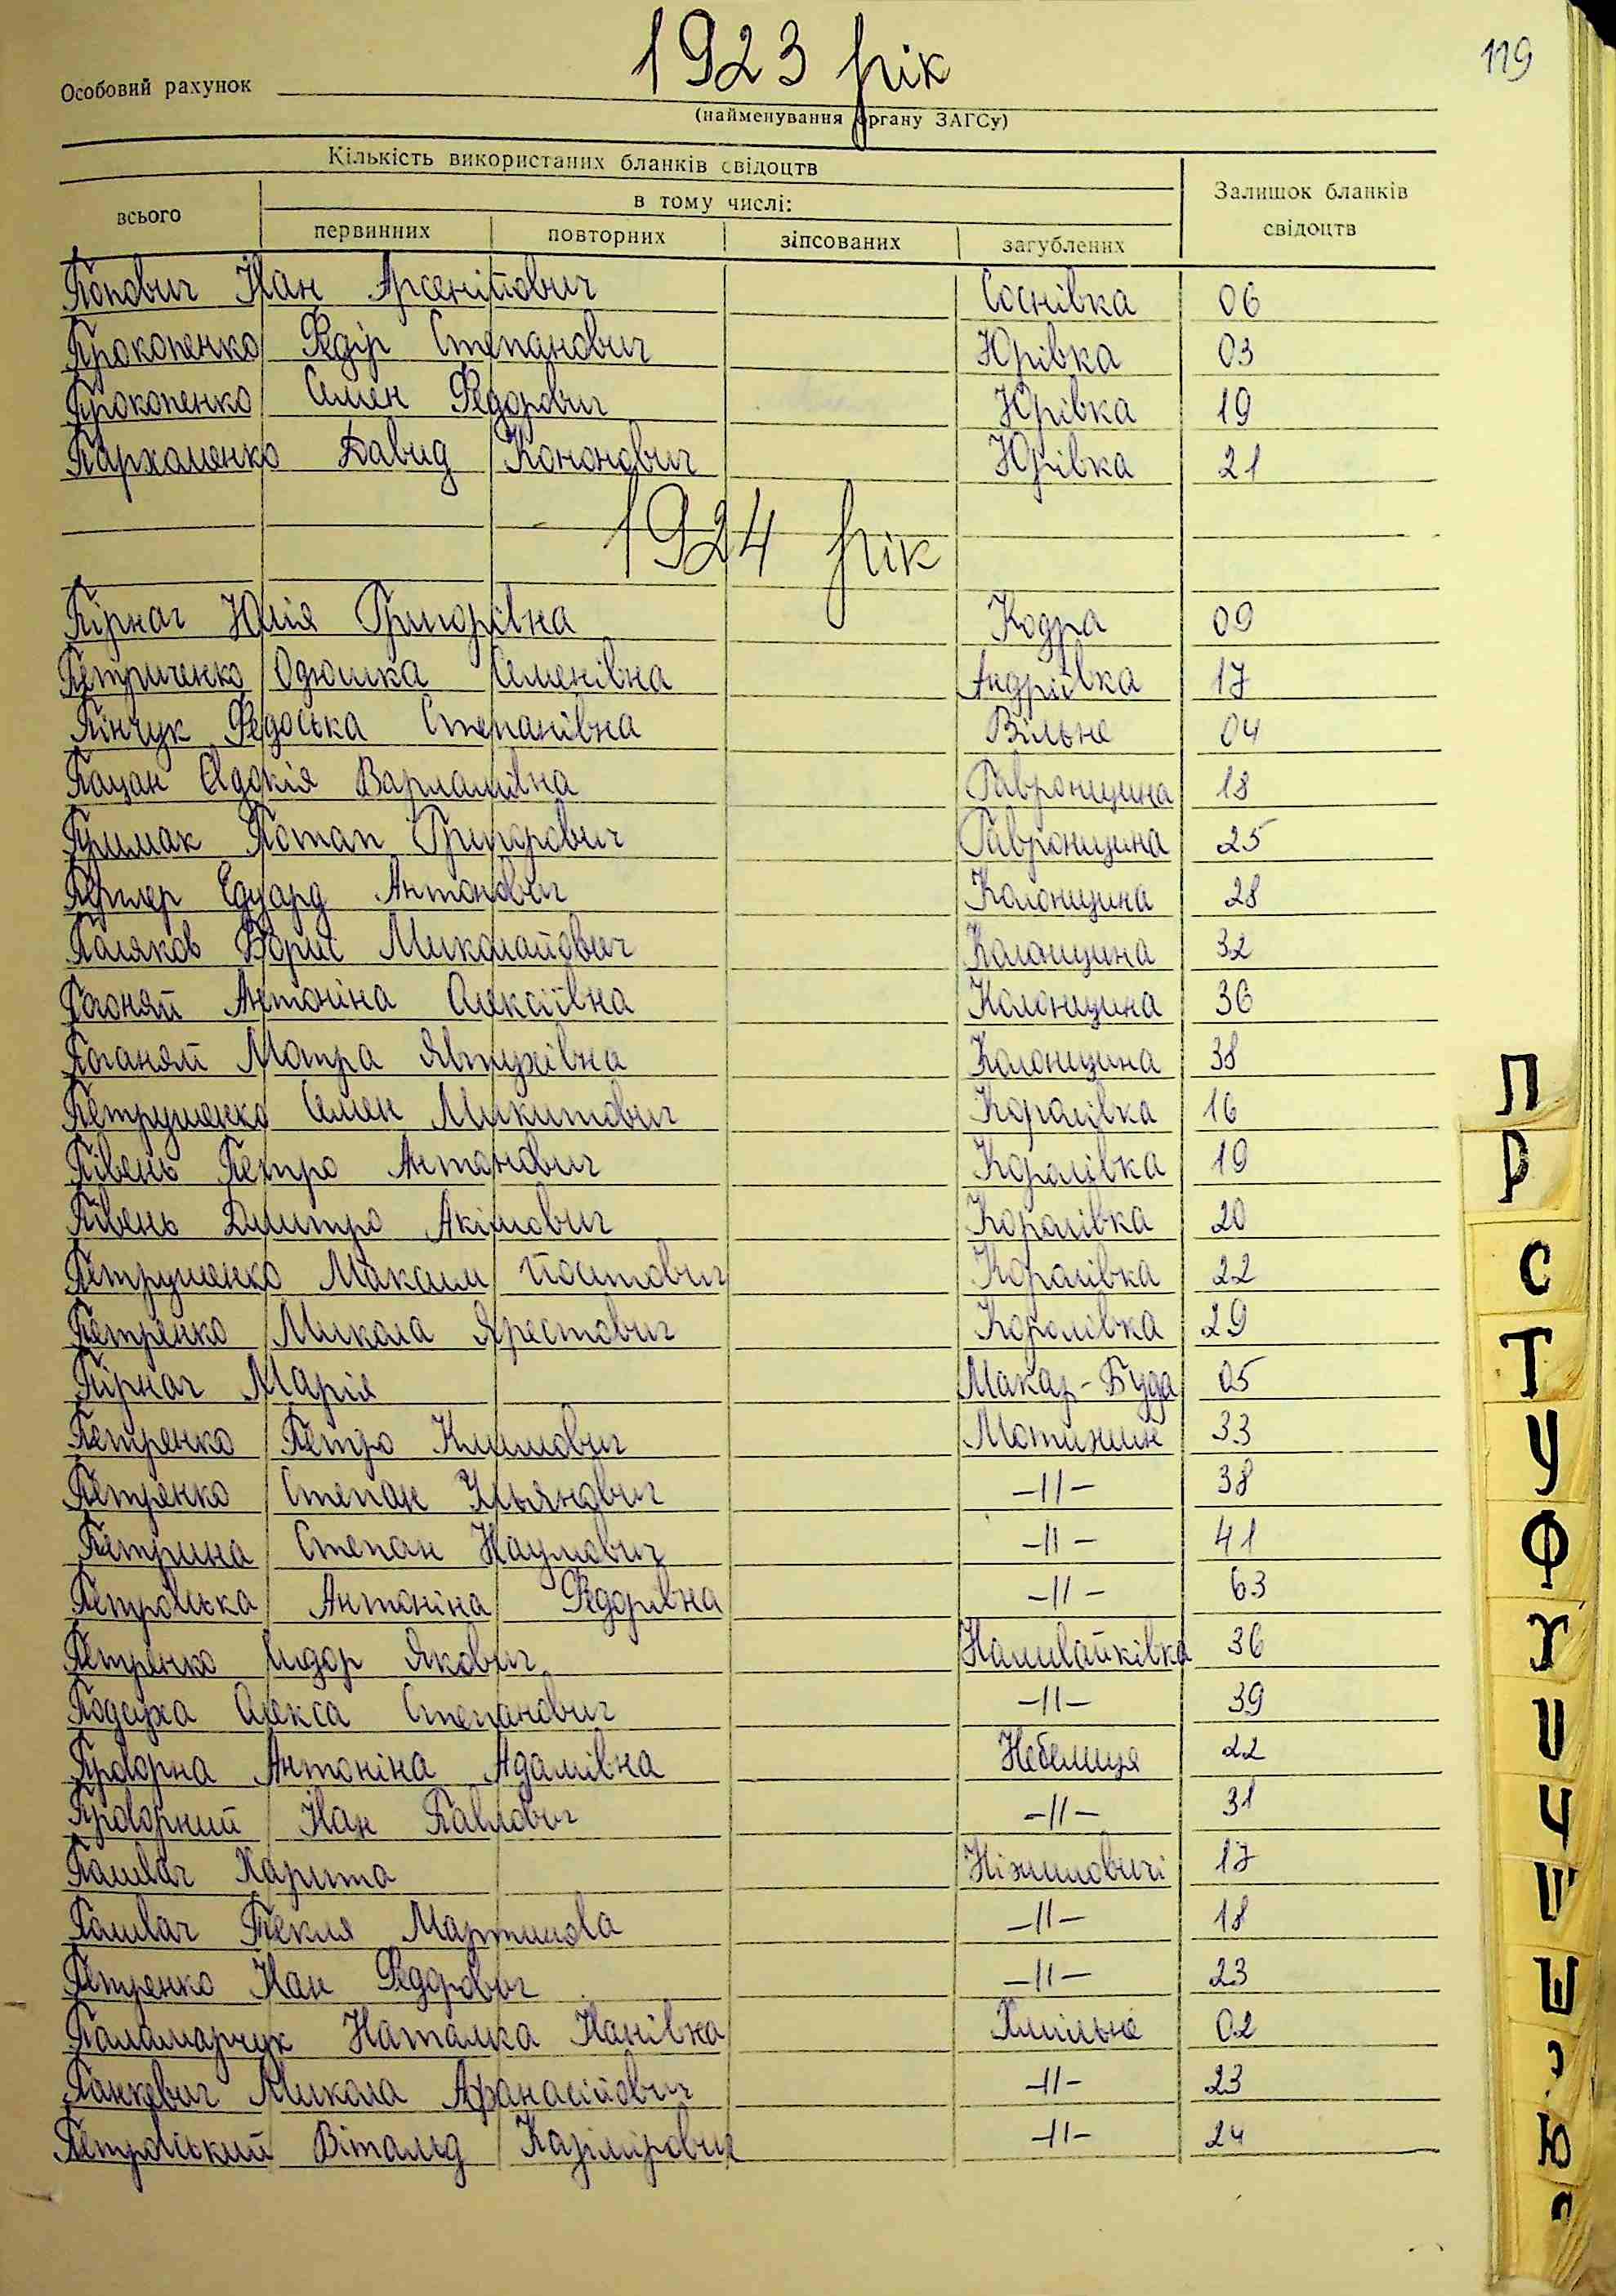 119
1923 рік
Особовий рахунок
(найменування органу ЗАГСу)
Кількість використаних бланків свідоцтв
Залишок бланків свідоцтв
всього
в тому числі:
первинних повторних зіпсованих загублених
Попович Іван Арсенійович Соснівка 06
Прокопенко Федір Степанович Юрівка 03
Прокопенко Семен Федорович Юрівка 19
Пархоменко Давид Кононович Юрівка 21
1924 рік
Пірнач Юлія Григорівна Кодра 09
Петриченко Одюшка Семенівна Андріївка 17
Пінчук Федоська Степанівна Вільне 04
Пацан Євдокія Варламівна Гавронщина 18
Примак Потап Григорович Гавронщина 25
Едуард Антонович Колонщина 28
Поляков Борис Миколайович Колонщина 32
Погоняй Антоніна Олексіївна Колонщина 36
Поганяй Мотра Явтухівна Колонщина 38
Петрушенко Семен Микитович Королівка 16
Півень Петро Антонович Королівка 19
Півень Дмитро Акімович Королівка 20
Петрушенко Максим Королівка 22
Петренко Микола Ярестович Королівка 29
Пірнач Марія Макар-Буда 05
Петренко Петро Климович Мотижин 33
Петренко Степан Ульянович -//- 38
Петрина Степан Наумович -//- 41
Петровська Антоніна Федорівна -//- 63
Петренко Сидор Якович Наливайківка 36
Олекса Степанович -//- 39
Проворна Антоніна Адамівна Небелиця 22
Проворний Іван Павлович -//- 31
Паливач Харита Ніжиловичі 17
Паливач Текля Мартинова -//- 18
Петренко Іван Федорович -//- 23
Паламарчук Наталка Іванівна Хмільне 02
Панкевич Микола Афанасійович -//- 23
Петровський Вітальд Казімірович -//- 24
П
Р
С
Т
У
Ф
Х
Ц
Ч
Ш
Щ
Э
Ю